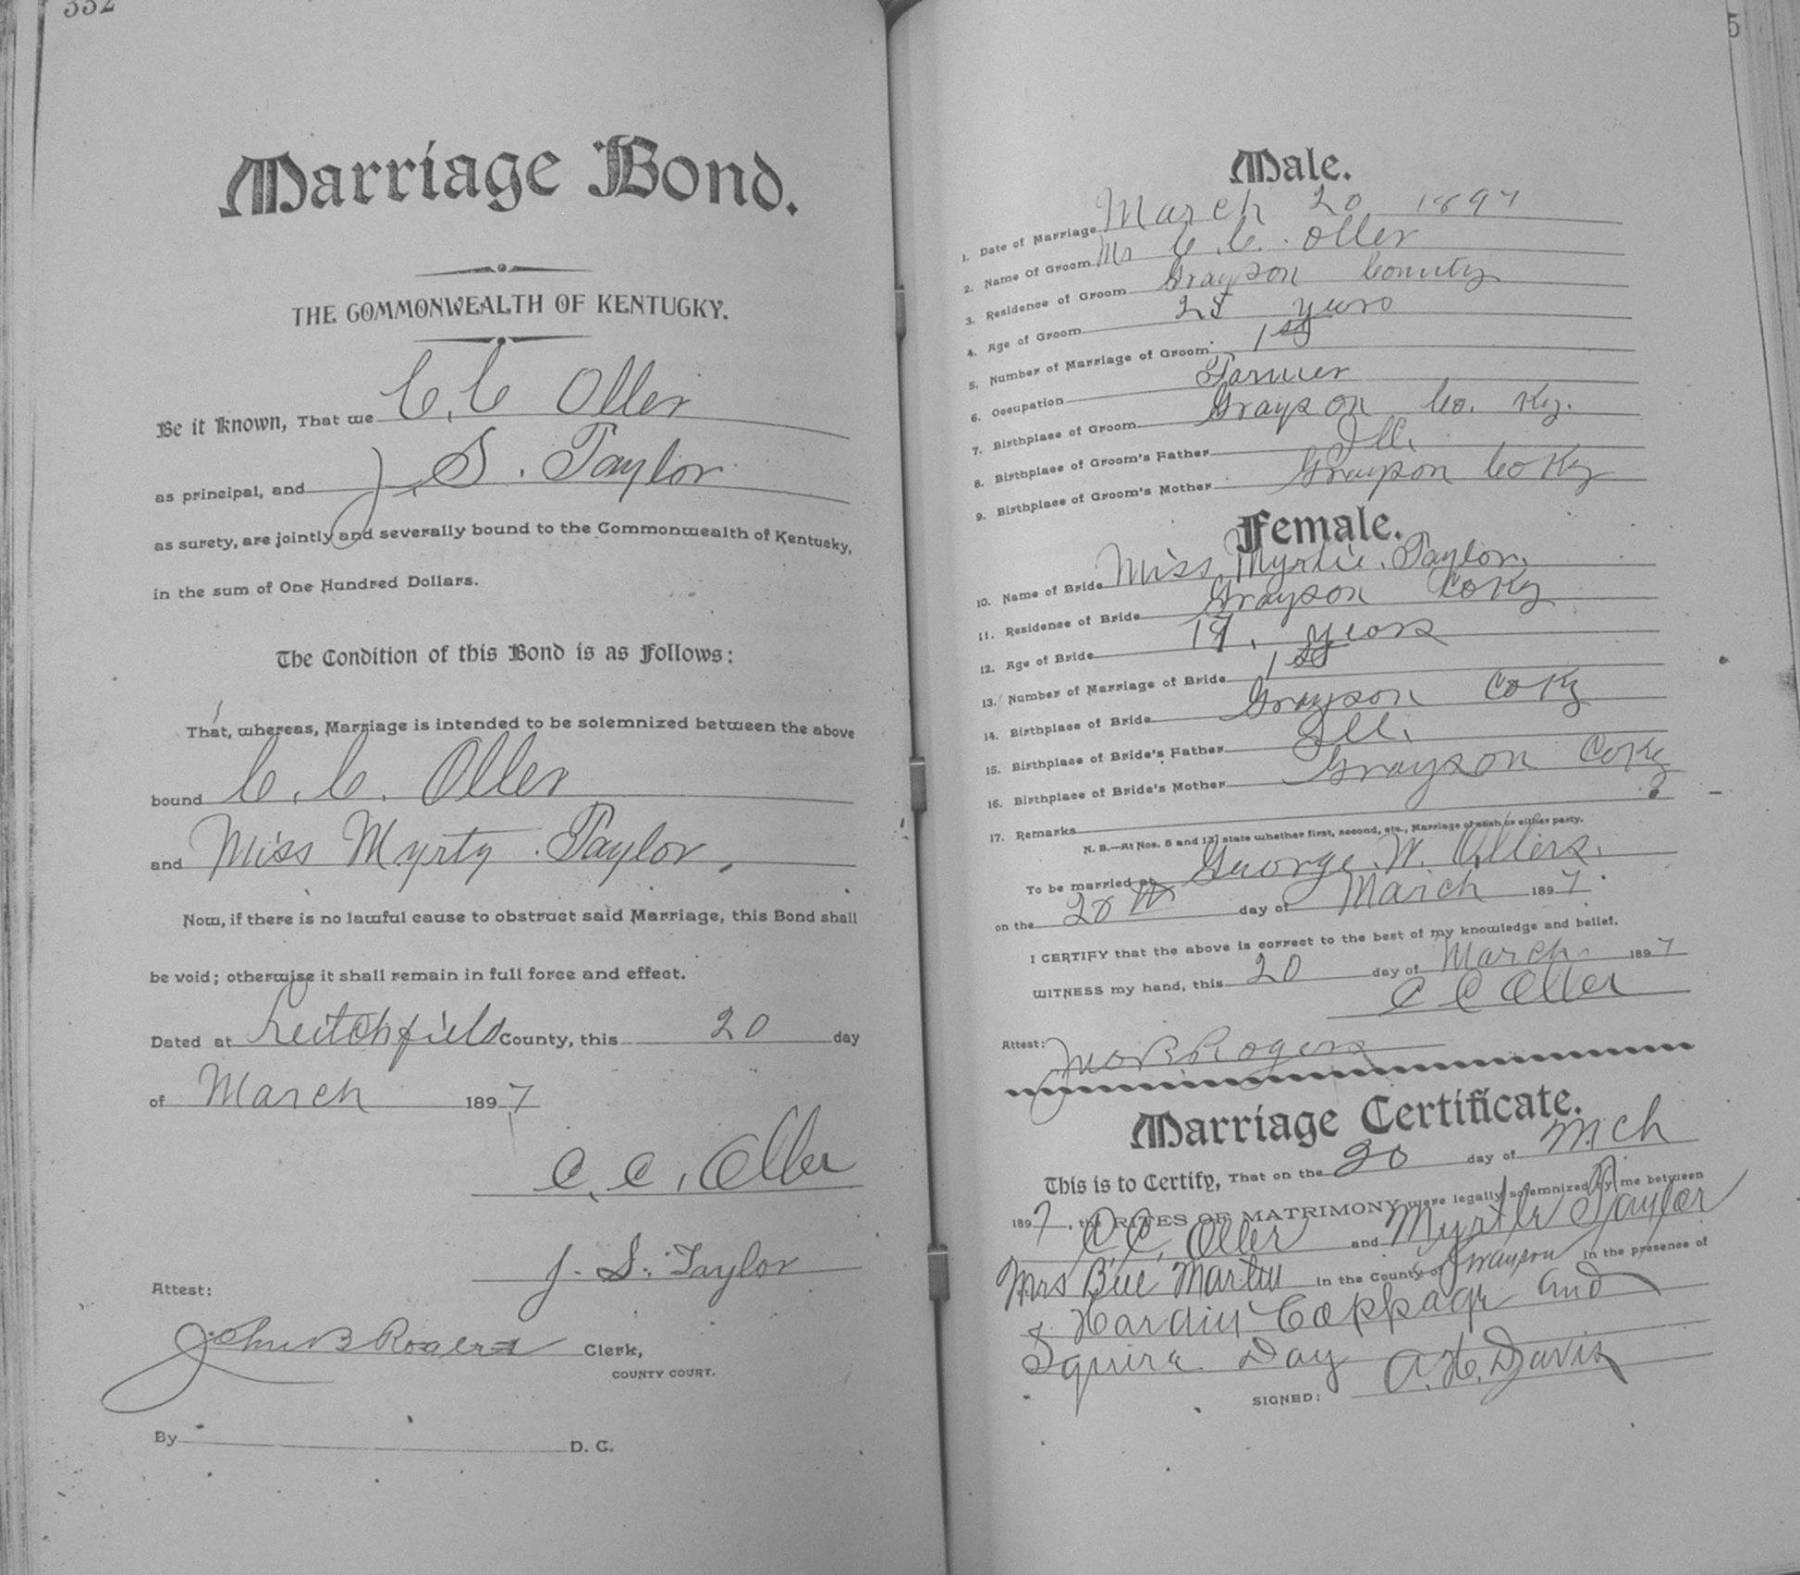 332
Marriage Bond.
THE COMMONWEALTH OF KENTUCKY.
Be it Known, That we C. C Oller
as principal, and J. S. Taylor
as surety, are jointly and severally bound to the Commonwealth of Kentucky,
in the sum of One Hundred Dollars.
The Condition of this Bond is as Follows:
That, whereas, Marriage is intended to be solemnized between the above
bound C. C. Oller
and Miss Myrty Taylor,
Now, if there is no lawful cause to obstruct said Marriage, this Bond shall
be void; otherwise it shall remain in full force and effect.
Dated at Leitchfield County, this 20 day
of March 1897
C. C. Oller
J. S. Taylor
Attest:
John B Rogers Clerk,
COUNTY COURT.
By D. C.
5
Male.
1. Date of Marriage March 20 1897
2. Name of Groom Mr C. C. Oller
3. Residence of Groom Grayson County
4. Age of Groom years
5. Number of Marriage of Groom 1st
6. Occupation Farmer
7. Birthplace of Groom Grayson Co. Ky.
8. Birthplace of Groom's Father Ill.
9. Birthplace of Groom's Mother Grayson Co Ky
Female.
10. Name of Bride Miss Myrtie Taylor.
11. Residence of Bride Grayson Co Ky
12. Age of Bride years
13. Number of Marriage of Bride 1st
14. Birthplace of Bride Grayson Co Ky
15. Birthplace of Bride's Father Ill.
16. Birthplace of Bride's Mother Grayson Co Ky
17. Remarks
N. B.—At Nos. 5 and 13, state whether first, second, etc., Marriage of each or either party.
To be married at George W. Ollers.
on the 20th day of March 1897.
I CERTIFY that the above is correct to the best of my knowledge and belief.
WITNESS my hand, this 20 day of March 1897
C C Oller
Attest: Jno B Rogers
Marriage Certificate.
This is to Certify, That on the 20 day of Mch
1897, the RITES OF MATRIMONY were legally solemnized by me between
C. C. Oller and Myrtle Taylor
Mrs Martin in the County of Grayson in the presence of
Hardin Coppage and
Squire Day
SIGNED: A. H. Davis